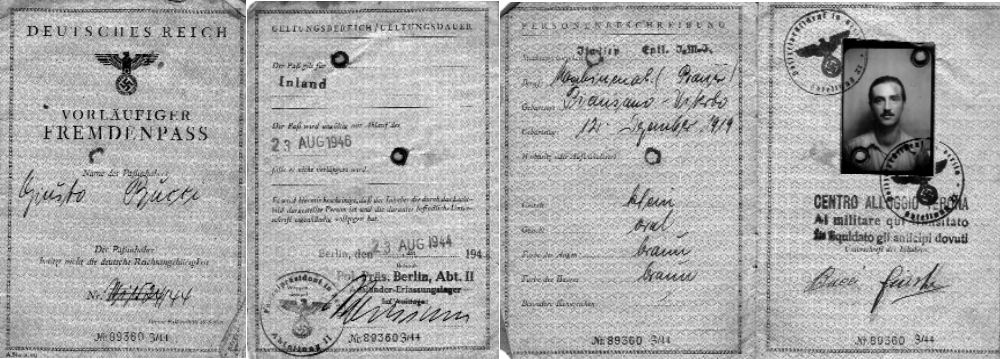 DEUTSCHES REICH
VORLÄUFIGER
FREMDENPASS
Name des Paßinhabers
Giusto Bucci
Der Paßinhaber
besitzt nicht die deutsche Reichsangehörigkeit
Nr.
№ 89360 3/44
GELTUNGSBEREICH/GELTUNGSDAUER
Der Paß gilt für
Inland
Der Paß wird ungültig mit Ablauf des
23 AUG 1946
falls er nicht verlängert wird.
Es wird hiermit bescheinigt, daß der Inhaber die durch das Licht-
bild dargestellte Person ist und die darunter befindliche Unter-
schrift eigenhändig vollzogen hat.
Berlin, den 23 AUG 1944 194
Pol. Präs. Berlin, Abt. II
Ausländer-Erfassungslager
Polizeipräsident in
Abteilung II
№ 89360 3/44
PERSONENBESCHREIBUNG
Italien
Beruf
Geburtsort
Geburtstag 12. Dezember 1919
Wohnsitz oder Aufenthaltsort
Gestalt klein
Gesicht oval
Farbe der Augen braun
Farbe des Haares braun
Besondere Kennzeichen
№ 89360 3/44
CENTRO ALLOGGIO VERONA
Al militare qui transitato
fu liquidato gli anticipi dovuti
Unterschrift des Inhabers
Bucci Giusto
№ 89360 3/44